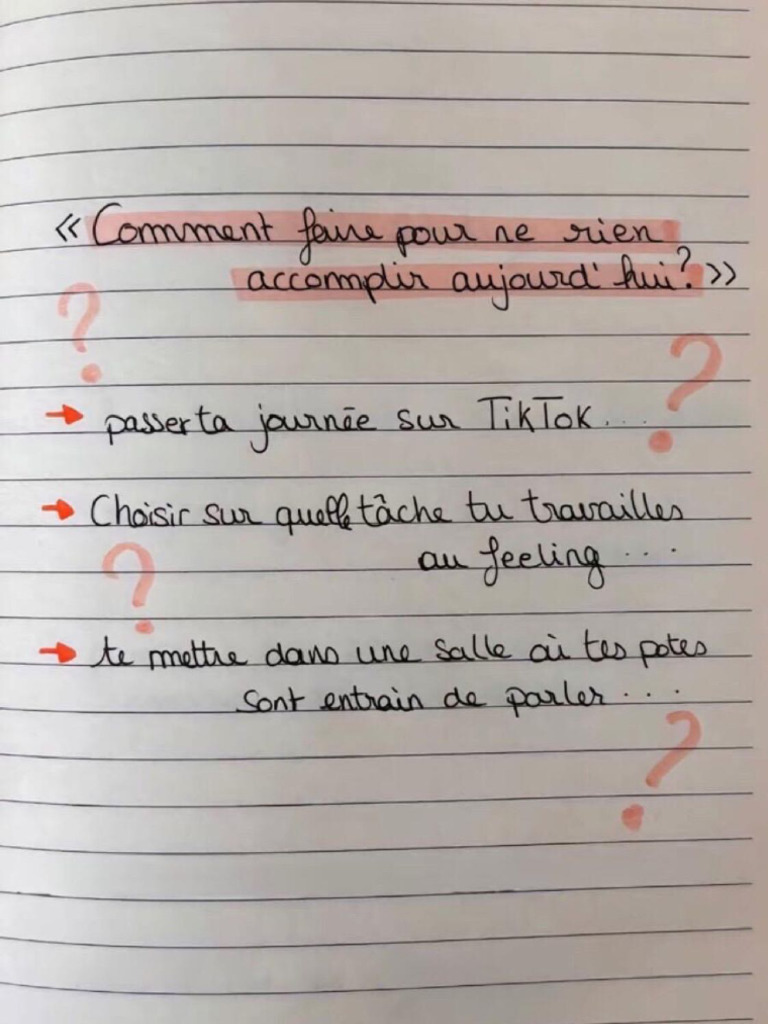 « Comment faire pour ne rien
accomplir aujourd'hui? »
?
?
→ passer ta journée sur TikTok...
→ Choisir sur quelle tâche tu travailles
au feeling ...
?
→ te mettre dans une salle où tes potes
sont entrain de parler ...
?